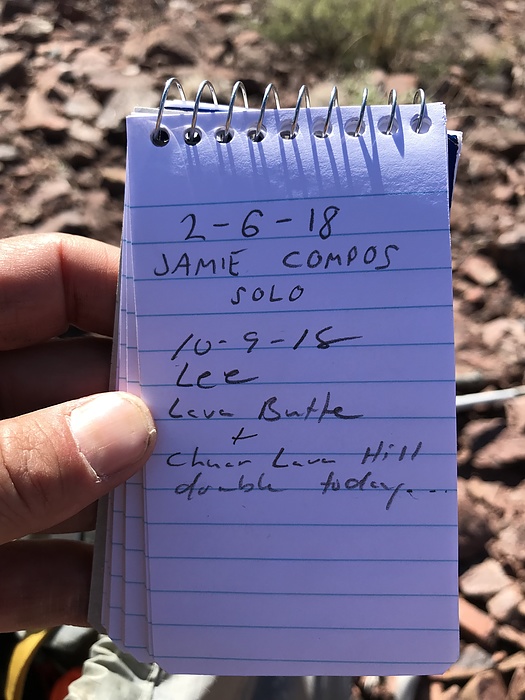 2-6-18
JAMIE COMPOS
SOLO
10-9-18
Lee
Lava Butte
+
Chuar Lava Hill
double today...